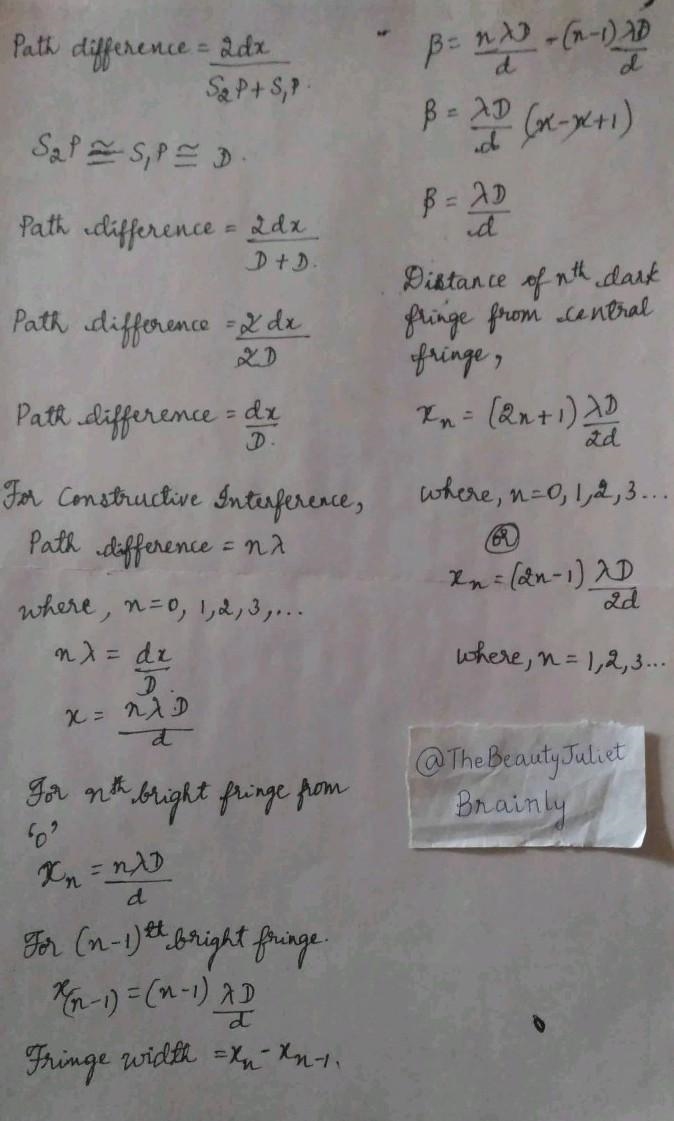 Path difference = 2dx / S₂P + S₁P.
S₂P ≅ S₁P ≅ D.
Path difference = 2dx / D + D.
Path difference = 2dx / 2D
Path difference = dx / D.
For Constructive Interference,
Path difference = nλ
where, n=0, 1,2,3,...
nλ = dx / D.
x = nλD / d
For nᵗʰ bright fringe from
'0'
xₙ = nλD / d
For (n-1)ᵗʰ bright fringe.
x(n-1) = (n-1) λD / d
Fringe width = xₙ - xₙ₋₁.
β = nλD / d - (n-1) λD / d
β = λD / d (n-n+1)
β = λD / d
Distance of nᵗʰ dark
fringe from central
fringe,
xₙ = (2n+1) λD / 2d
where, n=0,1,2,3...
OR
xₙ = (2n-1) λD / 2d
where, n = 1,2,3...
@TheBeautyJuliet
Brainly